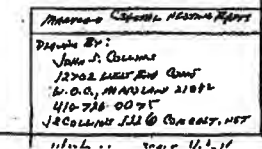 MARYLAND COASTAL NESTING RAFT
DRAWN BY:
JOHN S. COLLINS
12702 WEST END COURT
W.O.C., MARYLAND 21842
410-726-0075
JSCOLLINS122@COMCAST.NET
SCALE